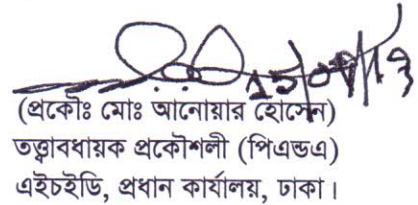 (প্রকৌঃ মোঃ আনোয়ার হোসেন)
তত্ত্বাবধায়ক প্রকৌশলী (পিএন্ডএ)
এইচইডি, প্রধান কার্যালয়, ঢাকা।